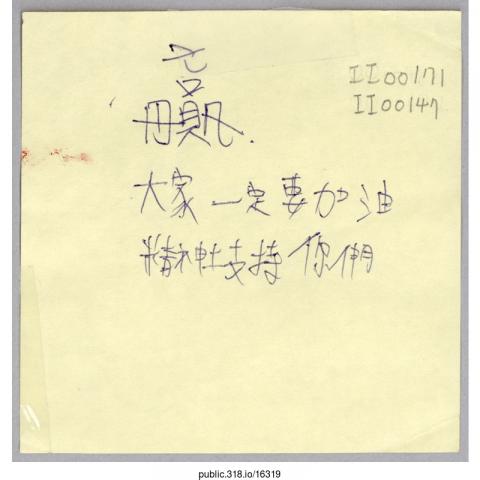 贏.
II00171
II00147
大家一定要加油
精神支持你們
public.318.io/16319